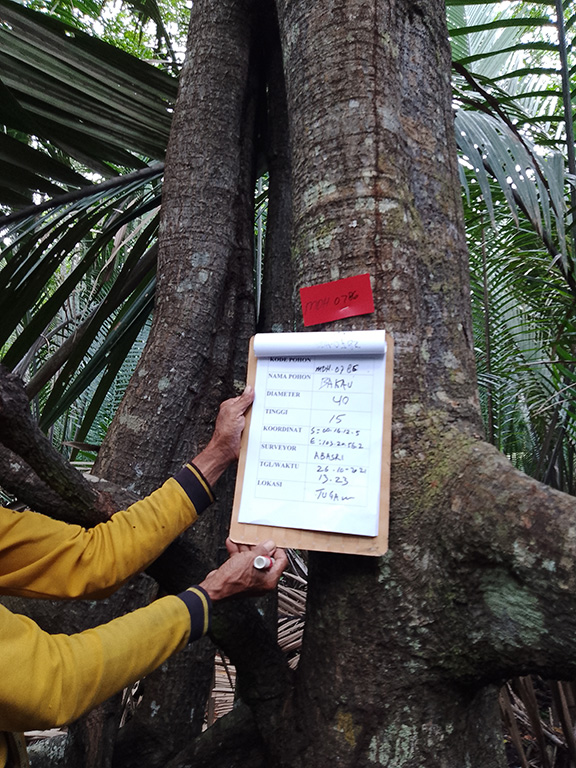 MDH.0786
KODE POHON MDH.0786
NAMA POHON BAKAU
DIAMETER 40
TINGGI 15
KOORDINAT S=00.16.12.5
E:103.20.562
SURVEYOR ABASRI
TGL/WAKTU 26-10-2021
13.23
LOKASI TUGAU